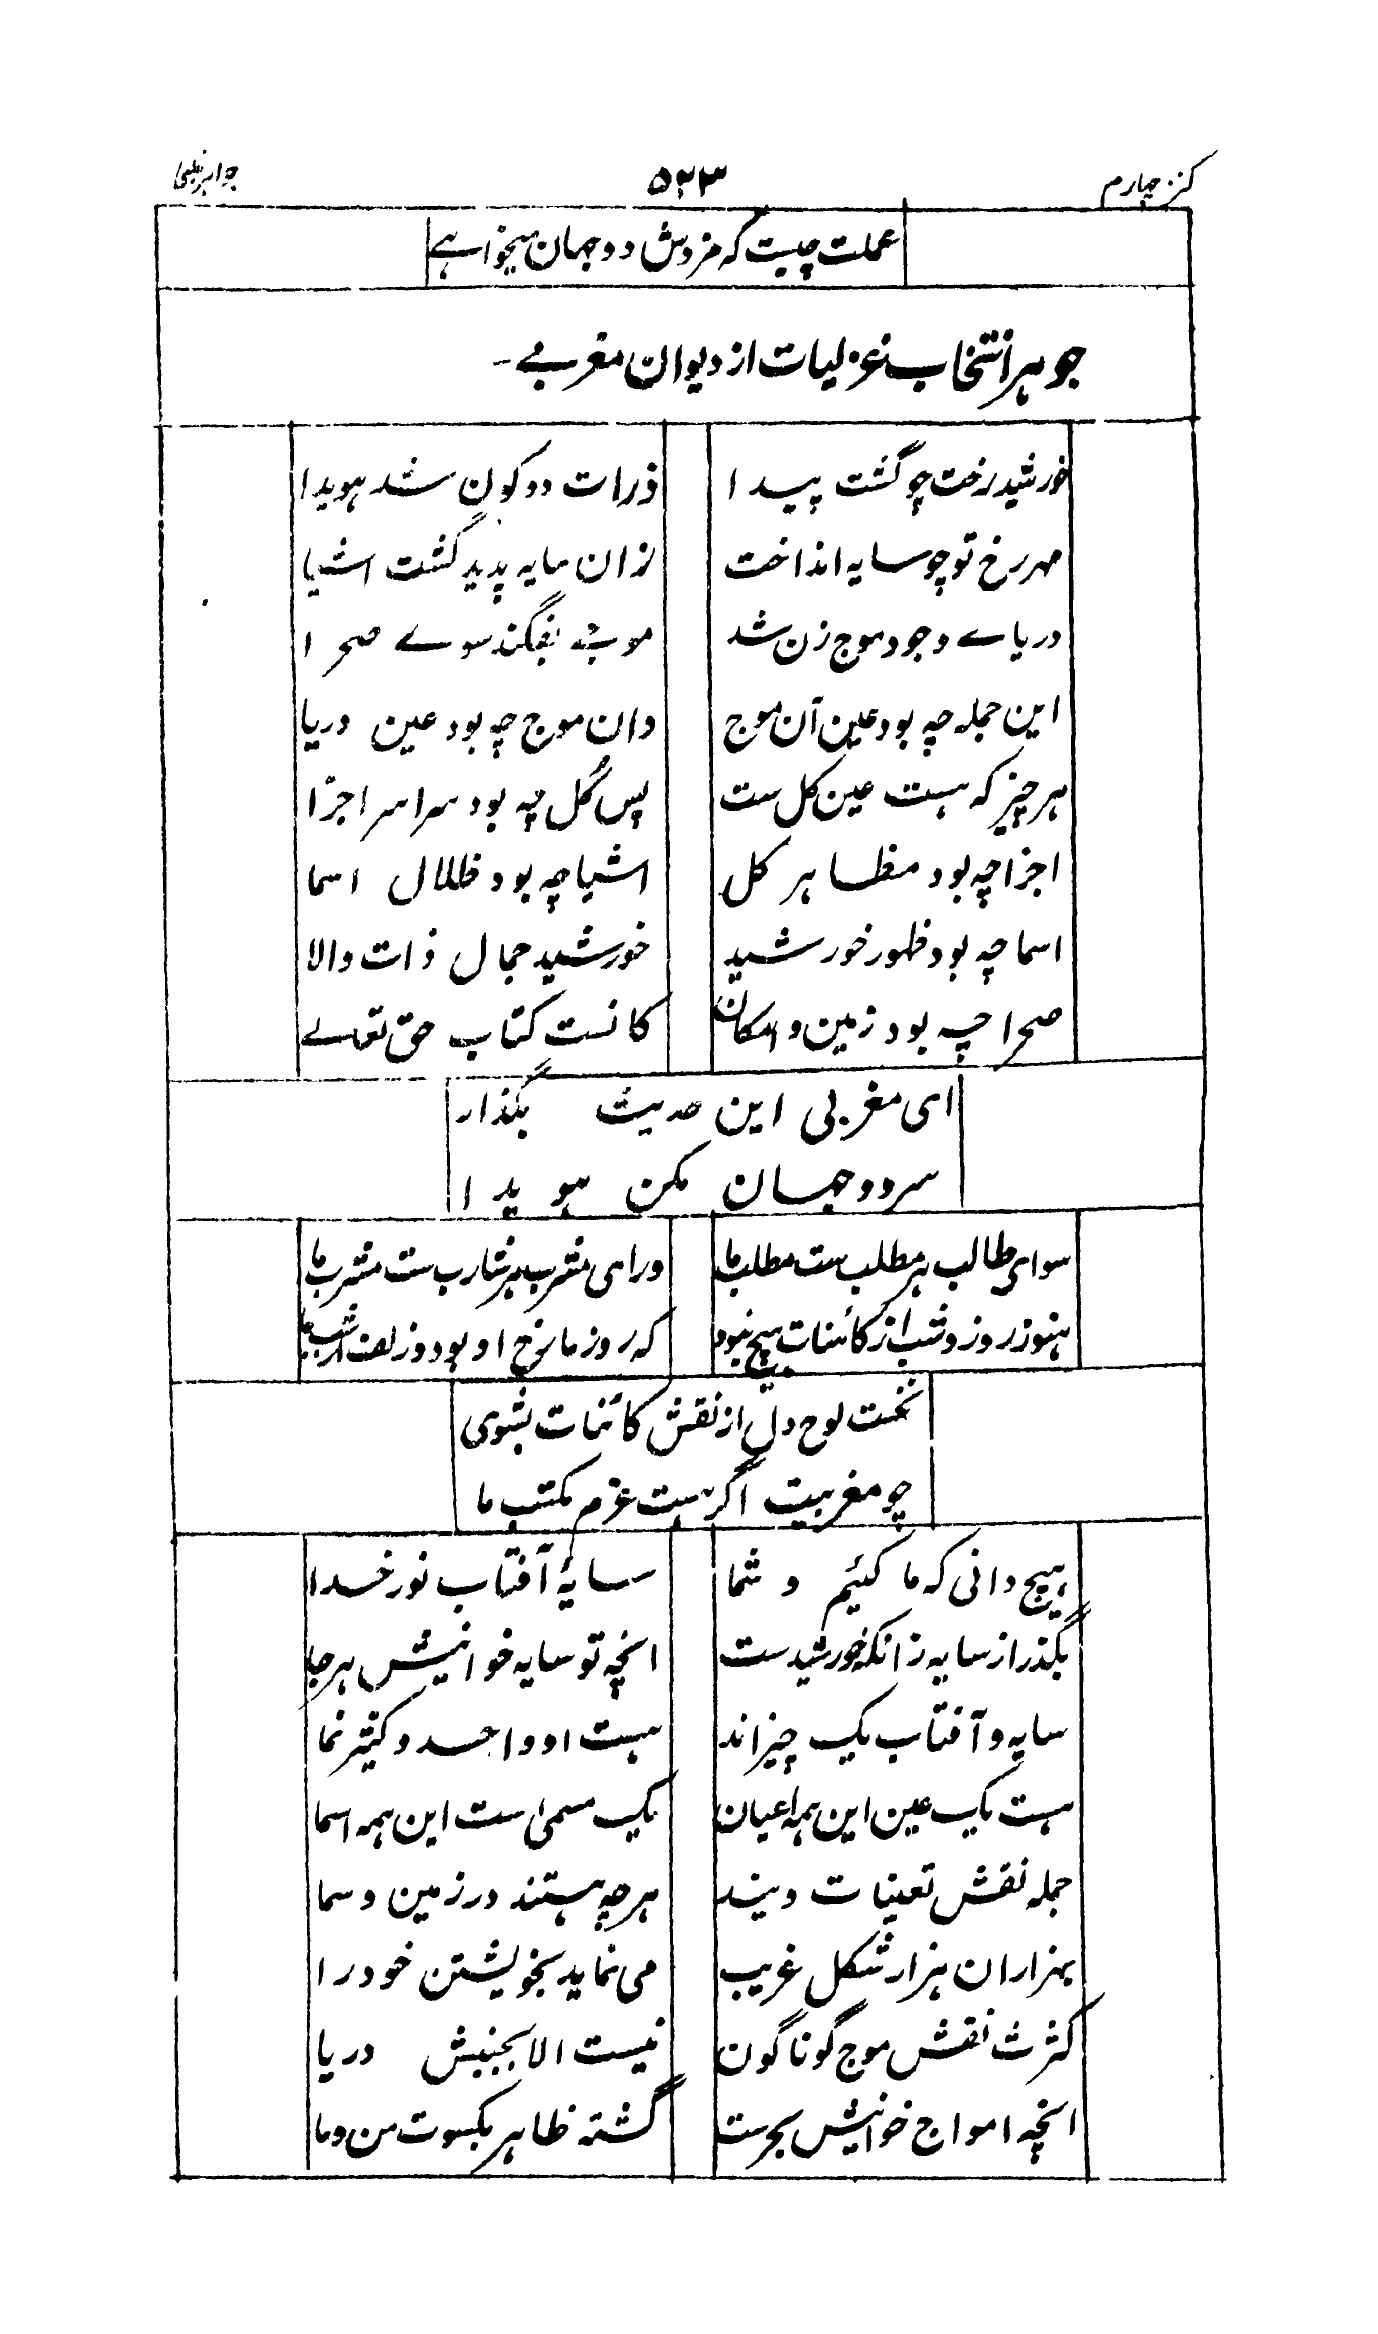 کنز چهارم
۵۲۳
جواهر غیبی
عملت چیست که مزدوش دو جهان میخواهے
جوهر انتخاب غزلیات از دیوان مغربے -
خورشید رخت چو گشت پیدا
ذرات دو کون شد هویدا
مهر رخ تو چو سایه انداخت
زان سایه پدید گشت اشیا
دریاے وجود موج زن شد
موجے بفگند سوے صحرا
این جمله چه بود عین آن موج
وان موج چه بود عین دریا
هر چیز که هست عین کل ست
پس کُل چه بود سراسر اجزا
اجزا چه بود مظاهر کل
اشیا چه بود ظلال اسما
اسما چه بود ظهور خورشید
خورشید جمال ذات والا
صحرا چه بود زمین و امکان
کانست کتاب حق تعالے
ای مغربی این حدیث بگذار
سر دو جهان مکن هویدا
سوای طالب هر مطلب ست مطلب ما
ورای مشرب هر شارب ست مشرب ما
هنوز روز و شب از کائنات هیچ نبود
که روز ما رخ او بود و زلف او شب ما
نخست لوح دل از نقش کائنات بشوی
چو مغربیت اگر هست عزم مکتب ما
هیچ دانی که ما کئیم و شما
سایۂ آفتاب نور خدا
بگذر از سایه زانکه خورشید ست
انچه تو سایه خوانیش هر جا
سایه و آفتاب یک چیز اند
هست او واحد و کثیر نما
هست یک عین این همه اعیان
یک مسمی ست این همه اسما
جمله نقش تعینات ویند
هر چه هستند در زمین و سما
بهزاران هزار شکل غریب
می نماید بخویشتن خود را
کثرت نقش موج گوناگون
نیست الا بجنبش دریا
انچه امواج خوانیش بحرست
گشته ظاهر بکسوت من و ما